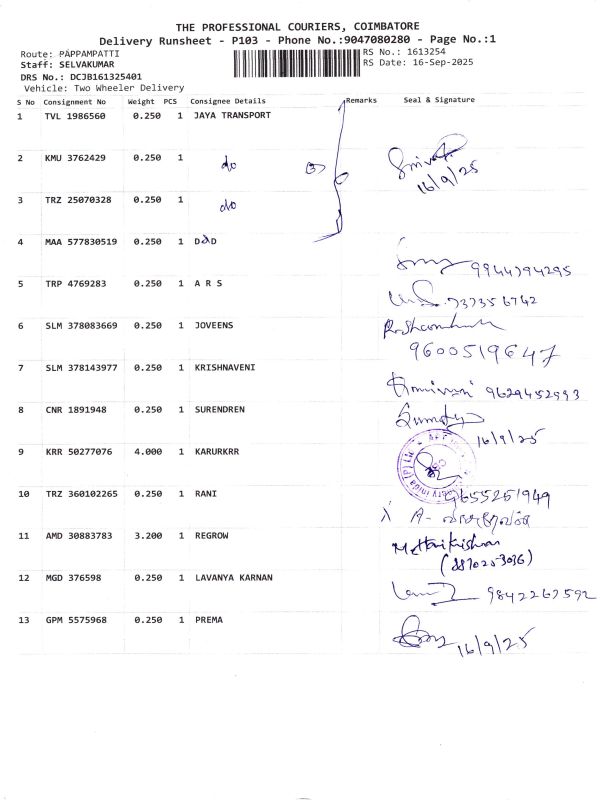 THE PROFESSIONAL COURIERS, COIMBATORE
Delivery Runsheet - P103 - Phone No.:9047080280 - Page No.:1
Route: PAPPAMPATTI RS No.: 1613254
Staff: SELVAKUMAR RS Date: 16-Sep-2025
DRS No.: DCJB161325401
Vehicle: Two Wheeler Delivery
S No Consignment No Weight PCS Consignee Details Remarks Seal & Signature
1 TVL 1986560 0.250 1 JAYA TRANSPORT
2 KMU 3762429 0.250 1 do 3
16/9/25
3 TRZ 25070328 0.250 1 do
4 MAA 577830519 0.250 1 D&D
9944794295
5 TRP 4769283 0.250 1 A R S
6 SLM 378083669 0.250 1 JOVEENS
9600519647
7 SLM 378143977 0.250 1 KRISHNAVENI
9629452993
8 CNR 1891948 0.250 1 SURENDREN
16/9/25
9 KRR 50277076 4.000 1 KARURKRR
10 TRZ 360102265 0.250 1 RANI 9655251949
11 AMD 30883783 3.200 1 REGROW
12 MGD 376598 0.250 1 LAVANYA KARNAN
9842262592
13 GPM 5575968 0.250 1 PREMA
16/9/25